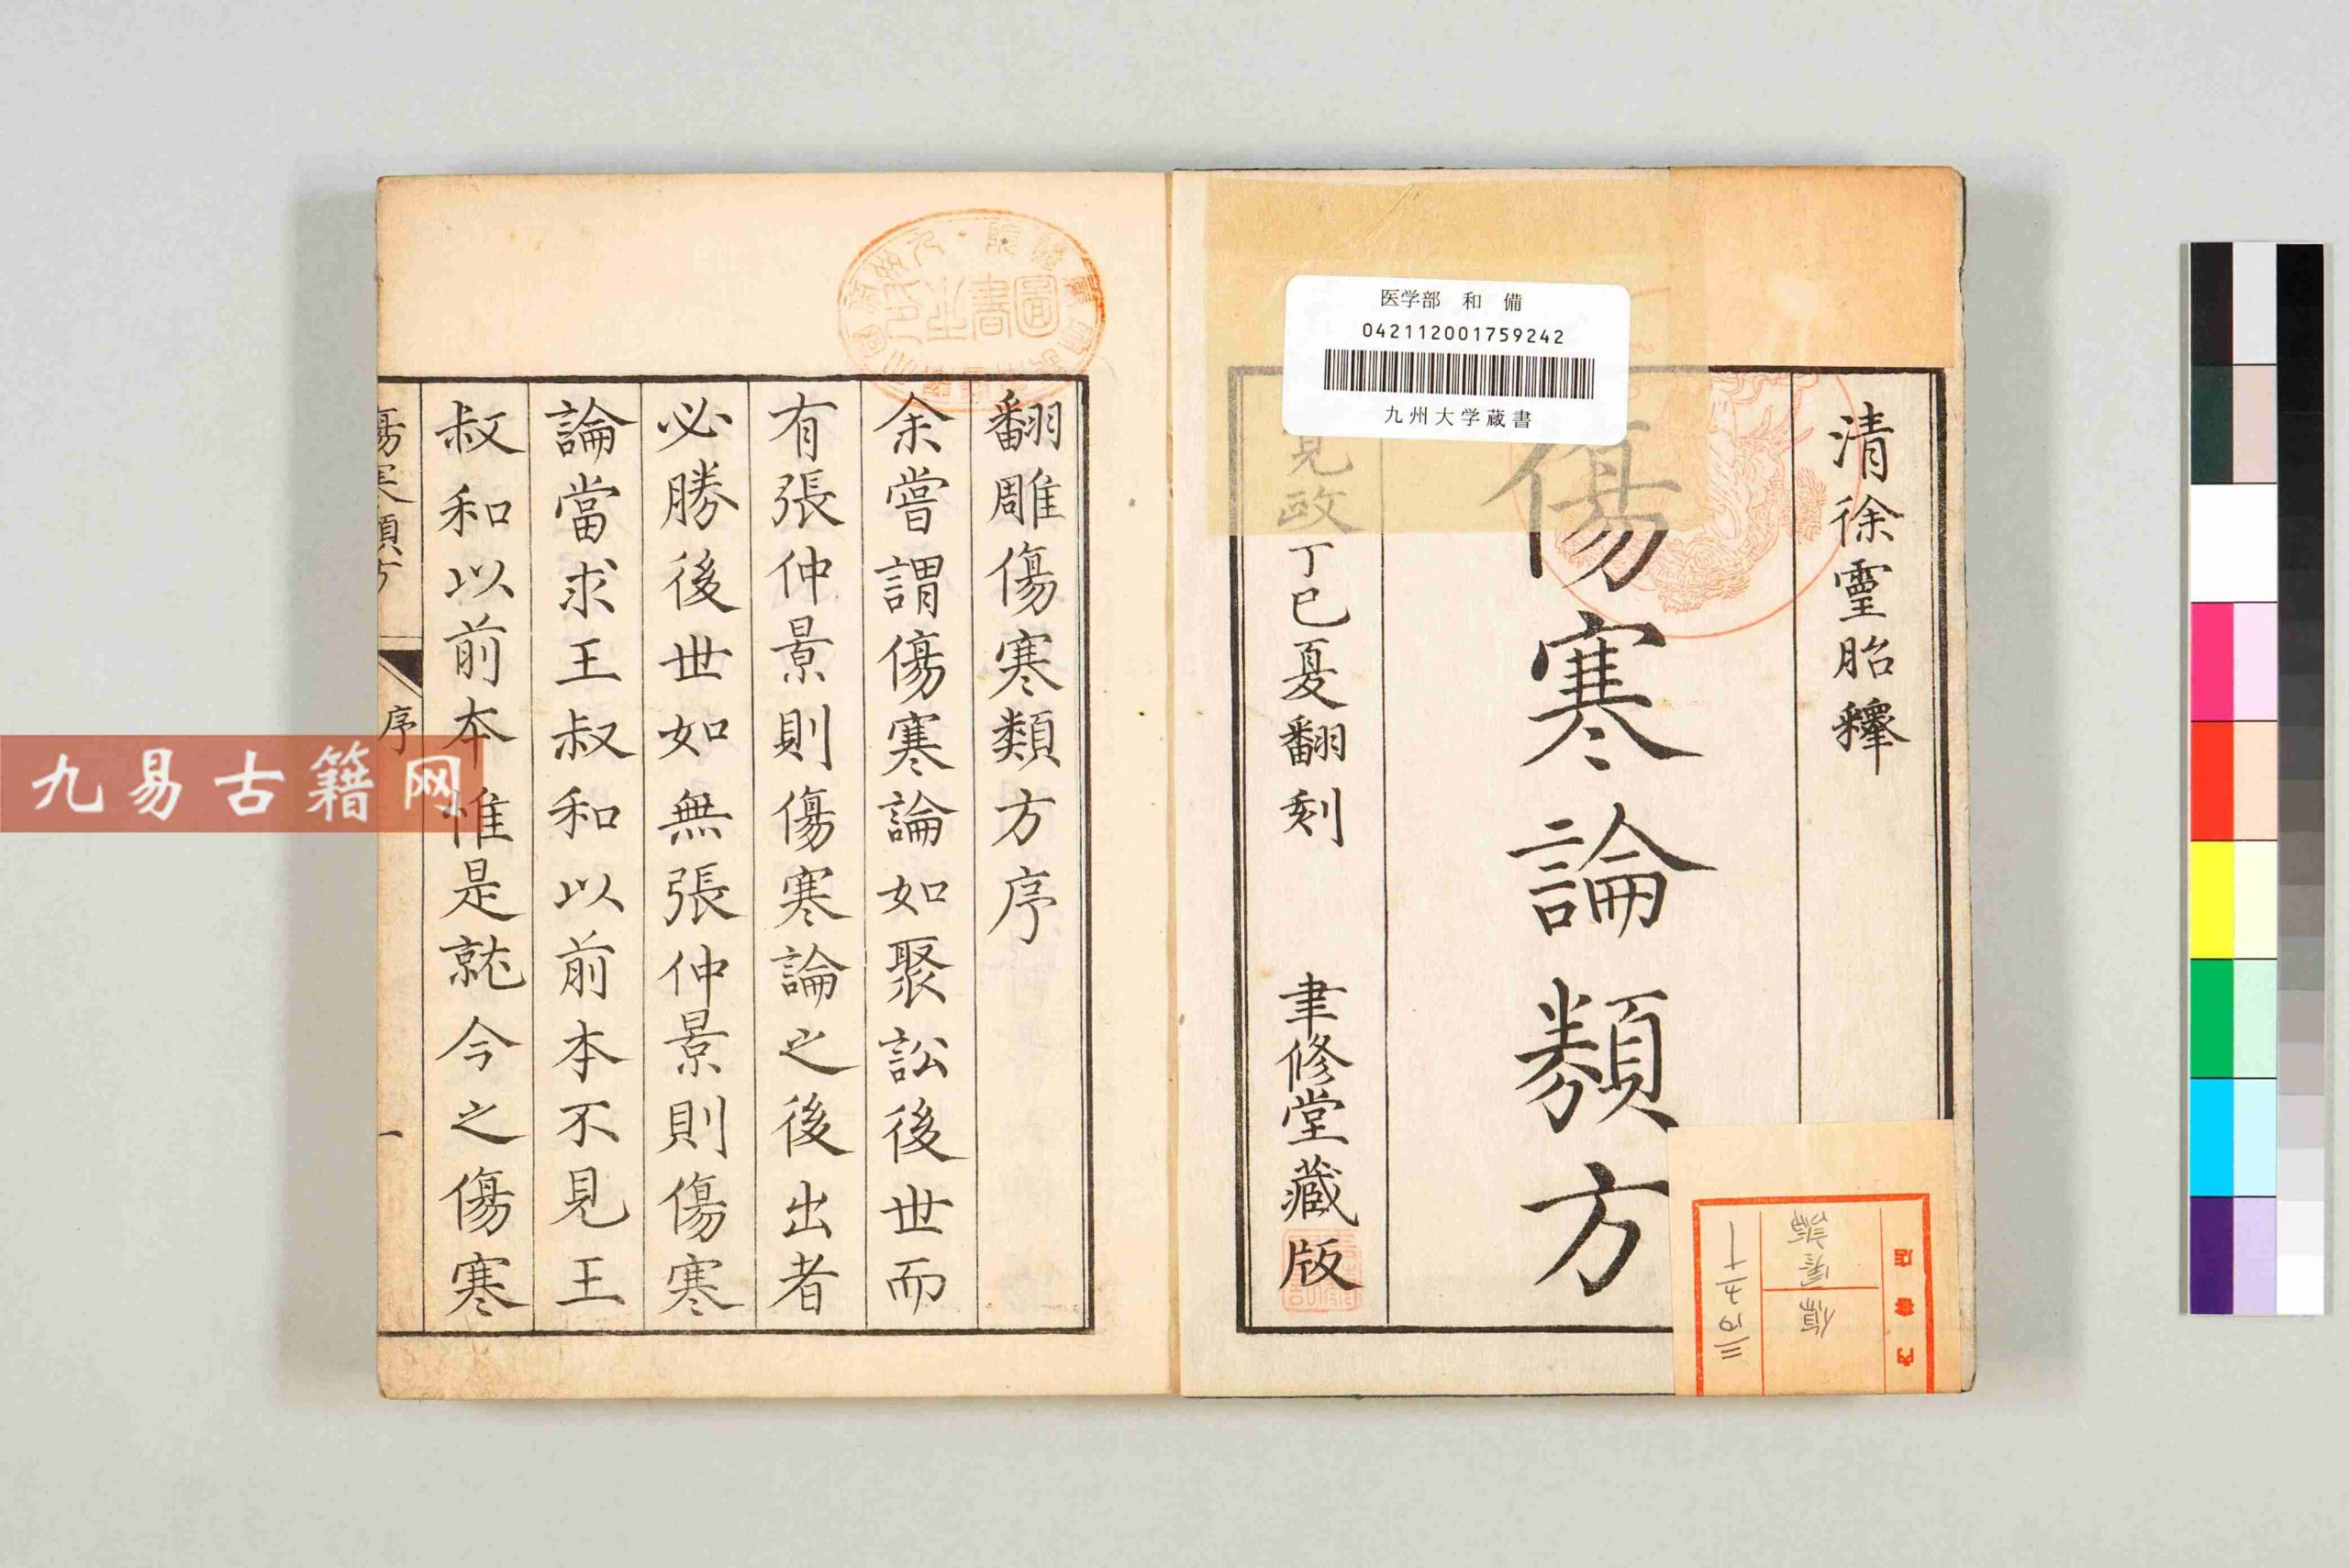 清徐靈胎釋
傷寒論類方
政丁巳夏翻刻
聿修堂藏版
医学部 和 備
042112001759242
九州大学蔵書
翻雕傷寒類方序
余嘗謂傷寒論如聚訟後世而
有張仲景則傷寒論之後出者
必勝後世如無張仲景則傷寒
論當求王叔和以前本不見王
叔和以前本惟是就今之傷寒
傷寒類方
序
一
圖書之印
九易古籍网